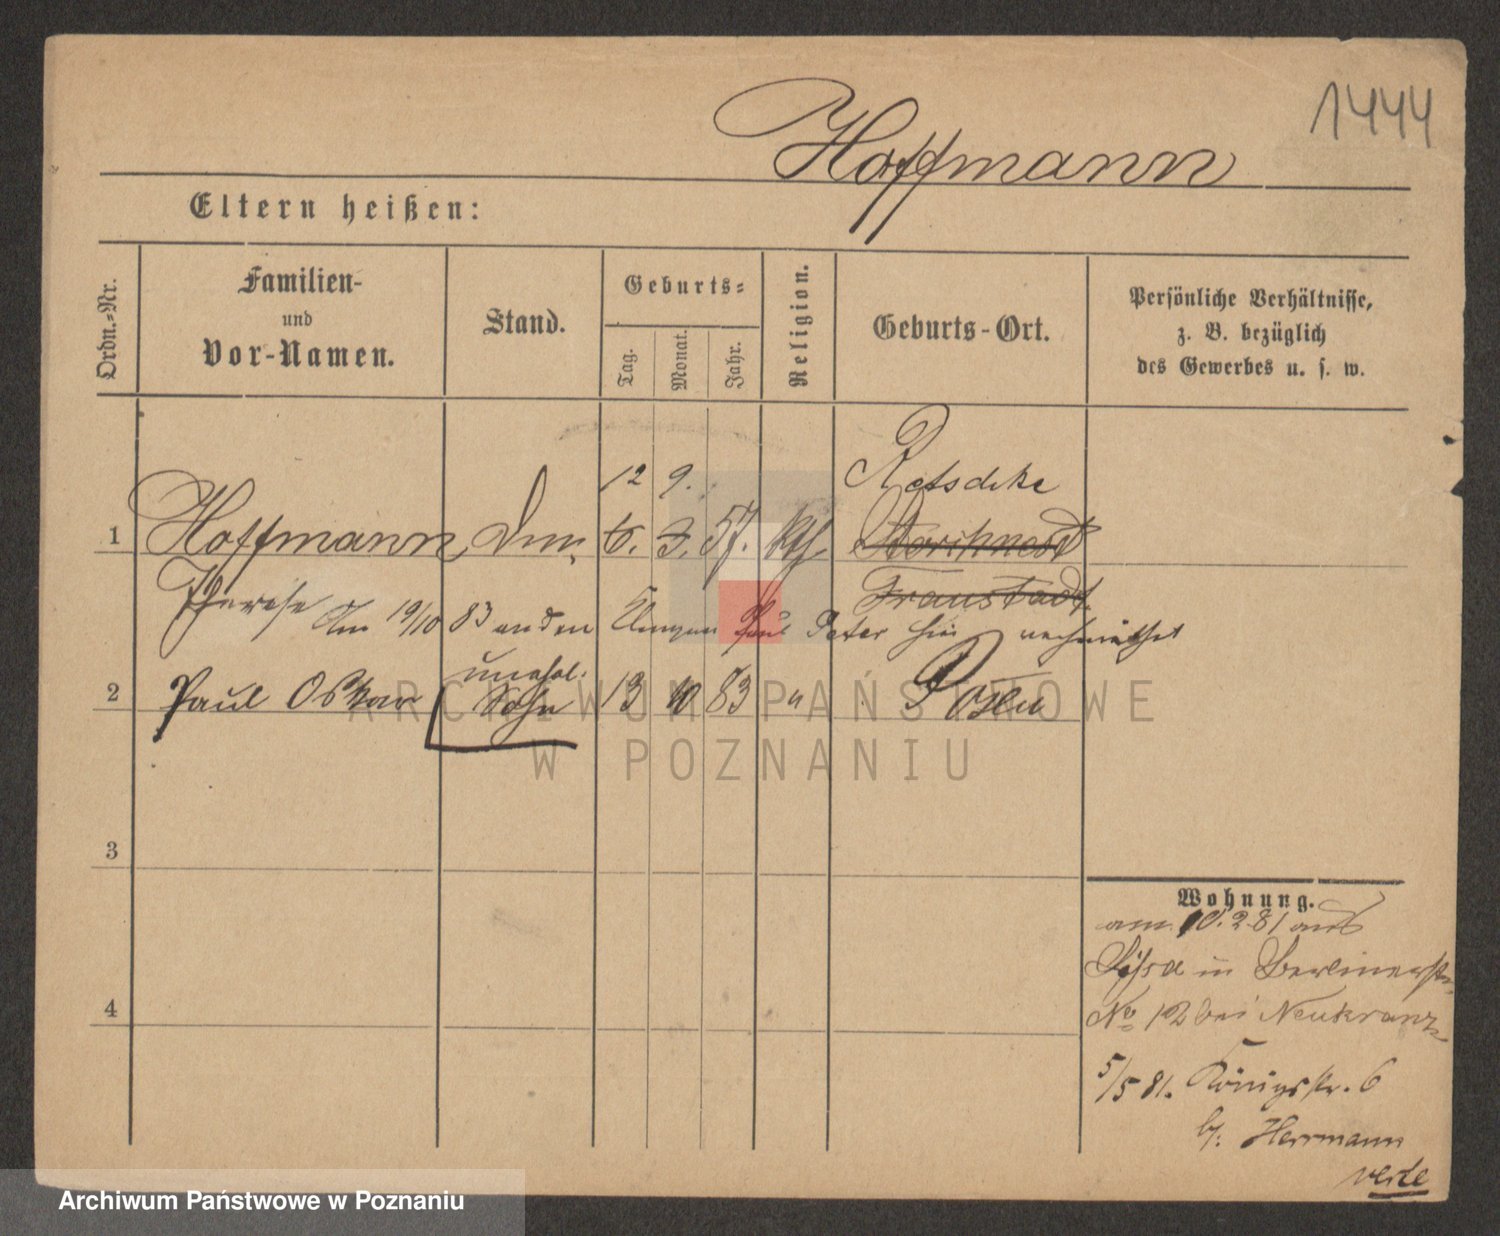 1444
Hoffmann
Eltern heißen:
Ordn.-Nr.
Familien-
und
Vor-Namen.
Stand.
Geburts-
Tag.
Monat.
Jahr.
Religion.
Geburts-Ort.
Persönliche Verhältnisse,
z. B. bezüglich
des Gewerbes u. s. w.
12 9. Retschke
1 Hoffmann 6. 3. 57. kth Storchnest
Fraustadt
Therese Am 19/10 83 an den Paul Peter
unehel.
2 Paul Oskar Sohn 13 10 83 " Posen
ARCHIWUM PAŃSTWOWE
W POZNANIU
3
4
Wohnung.
am 10. 2 81 aus
Lissa in Berlinerstr.
No 12 bei Neukranz
5/5 81. Königsstr. 6
b/: Herrmann
verte
Archiwum Państwowe w Poznaniu